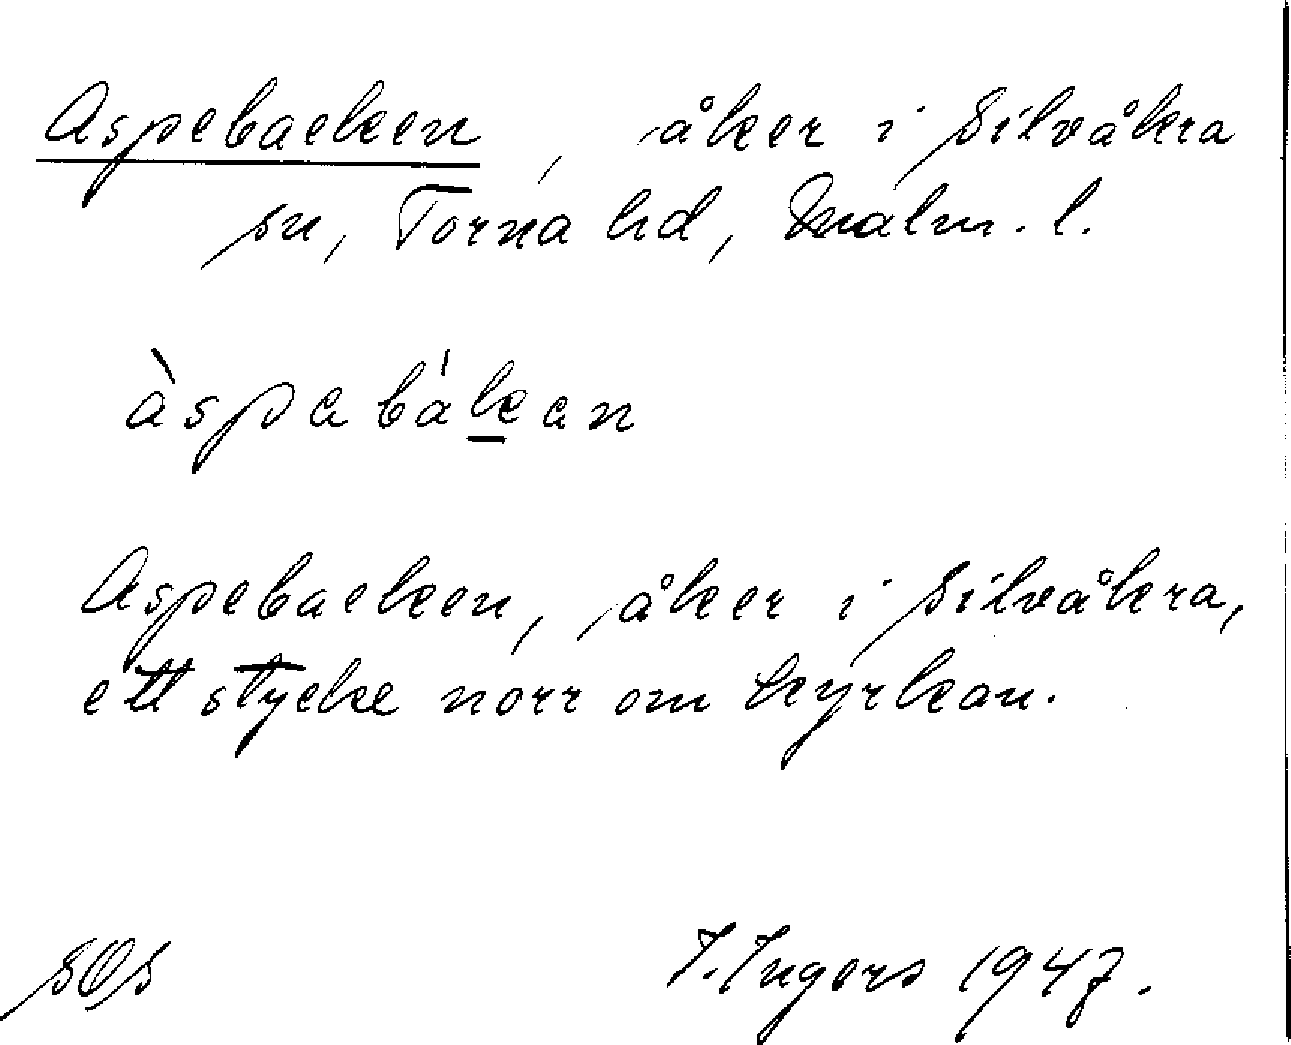 Aspebacken, åker i Silvåkra
sn, Torna hd, Malm. l.
àspabákan
Aspebacken, åker i Silvåkra,
ett stycke norr om kyrkan.
SOS I. Ingers 1947.